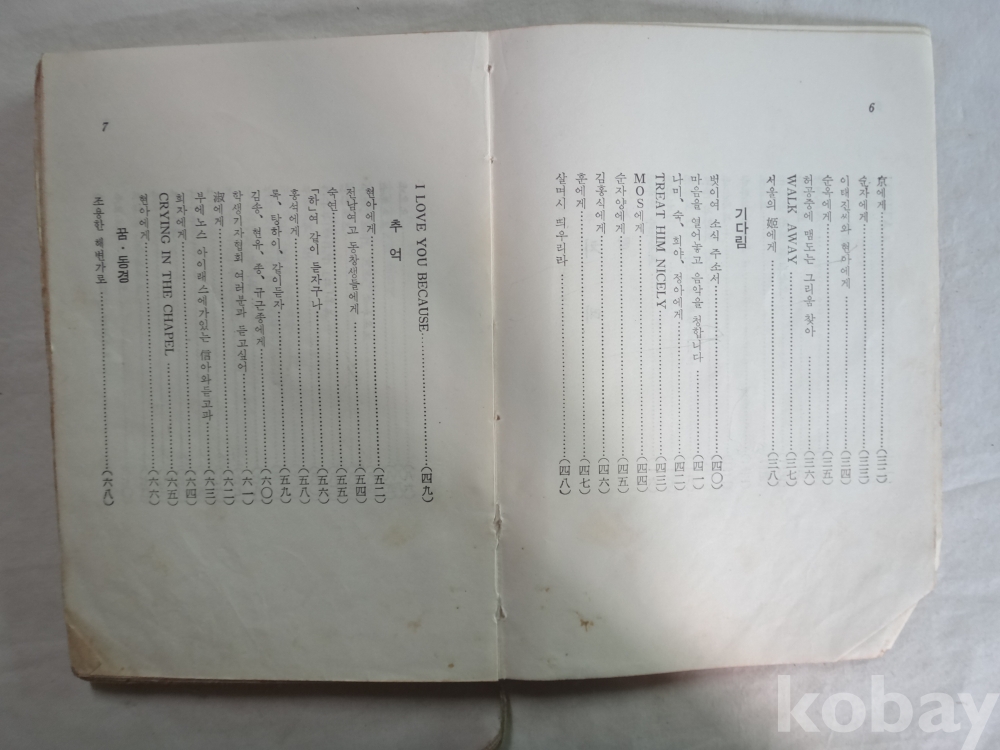 6
京에게 (三二)
순자에게 (三三)
이태진씨와 현아에게 (三四)
승옥에게 (三五)
허공중에 맴도는 그리움 찾아 (三六)
WALK AWAY (三七)
서웅의 姬에게 (三八)
기다림
벗이여 소식 주소서 (四〇)
마음을 열어놓고 음악을 청합니다 (四一)
나미, 숙, 희야, 정아에게 (四二)
TREAT HIM NICELY (四三)
MOS에게 (四四)
순자양에게 (四五)
김홍식에게 (四六)
훈에게 (四七)
살며시 띄우리라 (四八)
7
I LOVE YOU BECAUSE (四九)
추억
현아에게 (五二)
전남여고 동창생들에게 (五四)
숙연 (五五)
「하」여 같이 듣자구나 (五六)
홍석에게 (五八)
목, 탕하이, 같이듣자 (五九)
김송, 현욱, 종, 규근종에게 (六〇)
학생기자협회 여러분과 듣고싶어 (六一)
淑에게 (六二)
부에노스 아이래스에가있는 信아와듣고파 (六三)
희자에게 (六四)
CRYING IN THE CHAPEL (六五)
현아에게 (六六)
꿈・동경
조용한 해변가로 (六八)
kobay